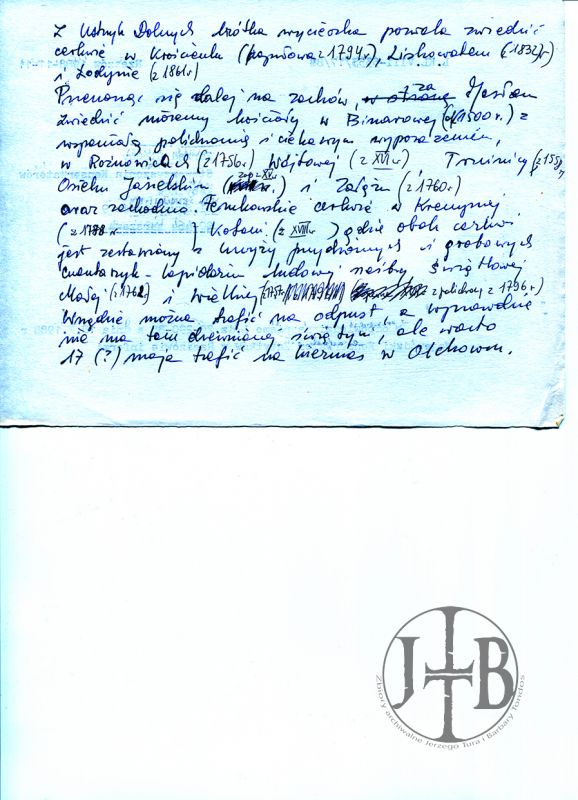 Z Ustrzyk Dolnych krótka wycieczka pozwala zwiedzić
cerkwie w Krościenku (murowana z 1794r), Liskowatem (z 1832r)
i Łodynie (z 1861r)
Przenosząc się dalej na zachów, za Jasłem
zwiedzić możemy kościoły w Binarowej (ok 1500r.) z
wspaniałą polichromią i ciekawym wyposażeniem,
w Rożnowicach (z 1756r) Wójtowej (z XVI w) Trzcinicy
Osieku Jasielskim i Załężu (z 1760r)
oraz zachodnio łemkowskie cerkwie w Krempnej
(z 1778 w) Kotani (z XVIII w) gdzie obok cerkwi
jest zestawiony z krzyży przydrożnych i grobowych
cmentarzyk - lapidarium ludowej rzeźby Świątkowej
Małej (z 1762) i Wielkiej (z 1757 z polichr. z 1796r)
Wszędzie można trafić na odpust, a wprawdzie
nie ma tam drewnianej świątyni, ale warto
17 (?) maja trafić na kiermesz w Olchowcu.
JTTB
Zbiory archiwalne Jerzego Tura i Barbary Tondos